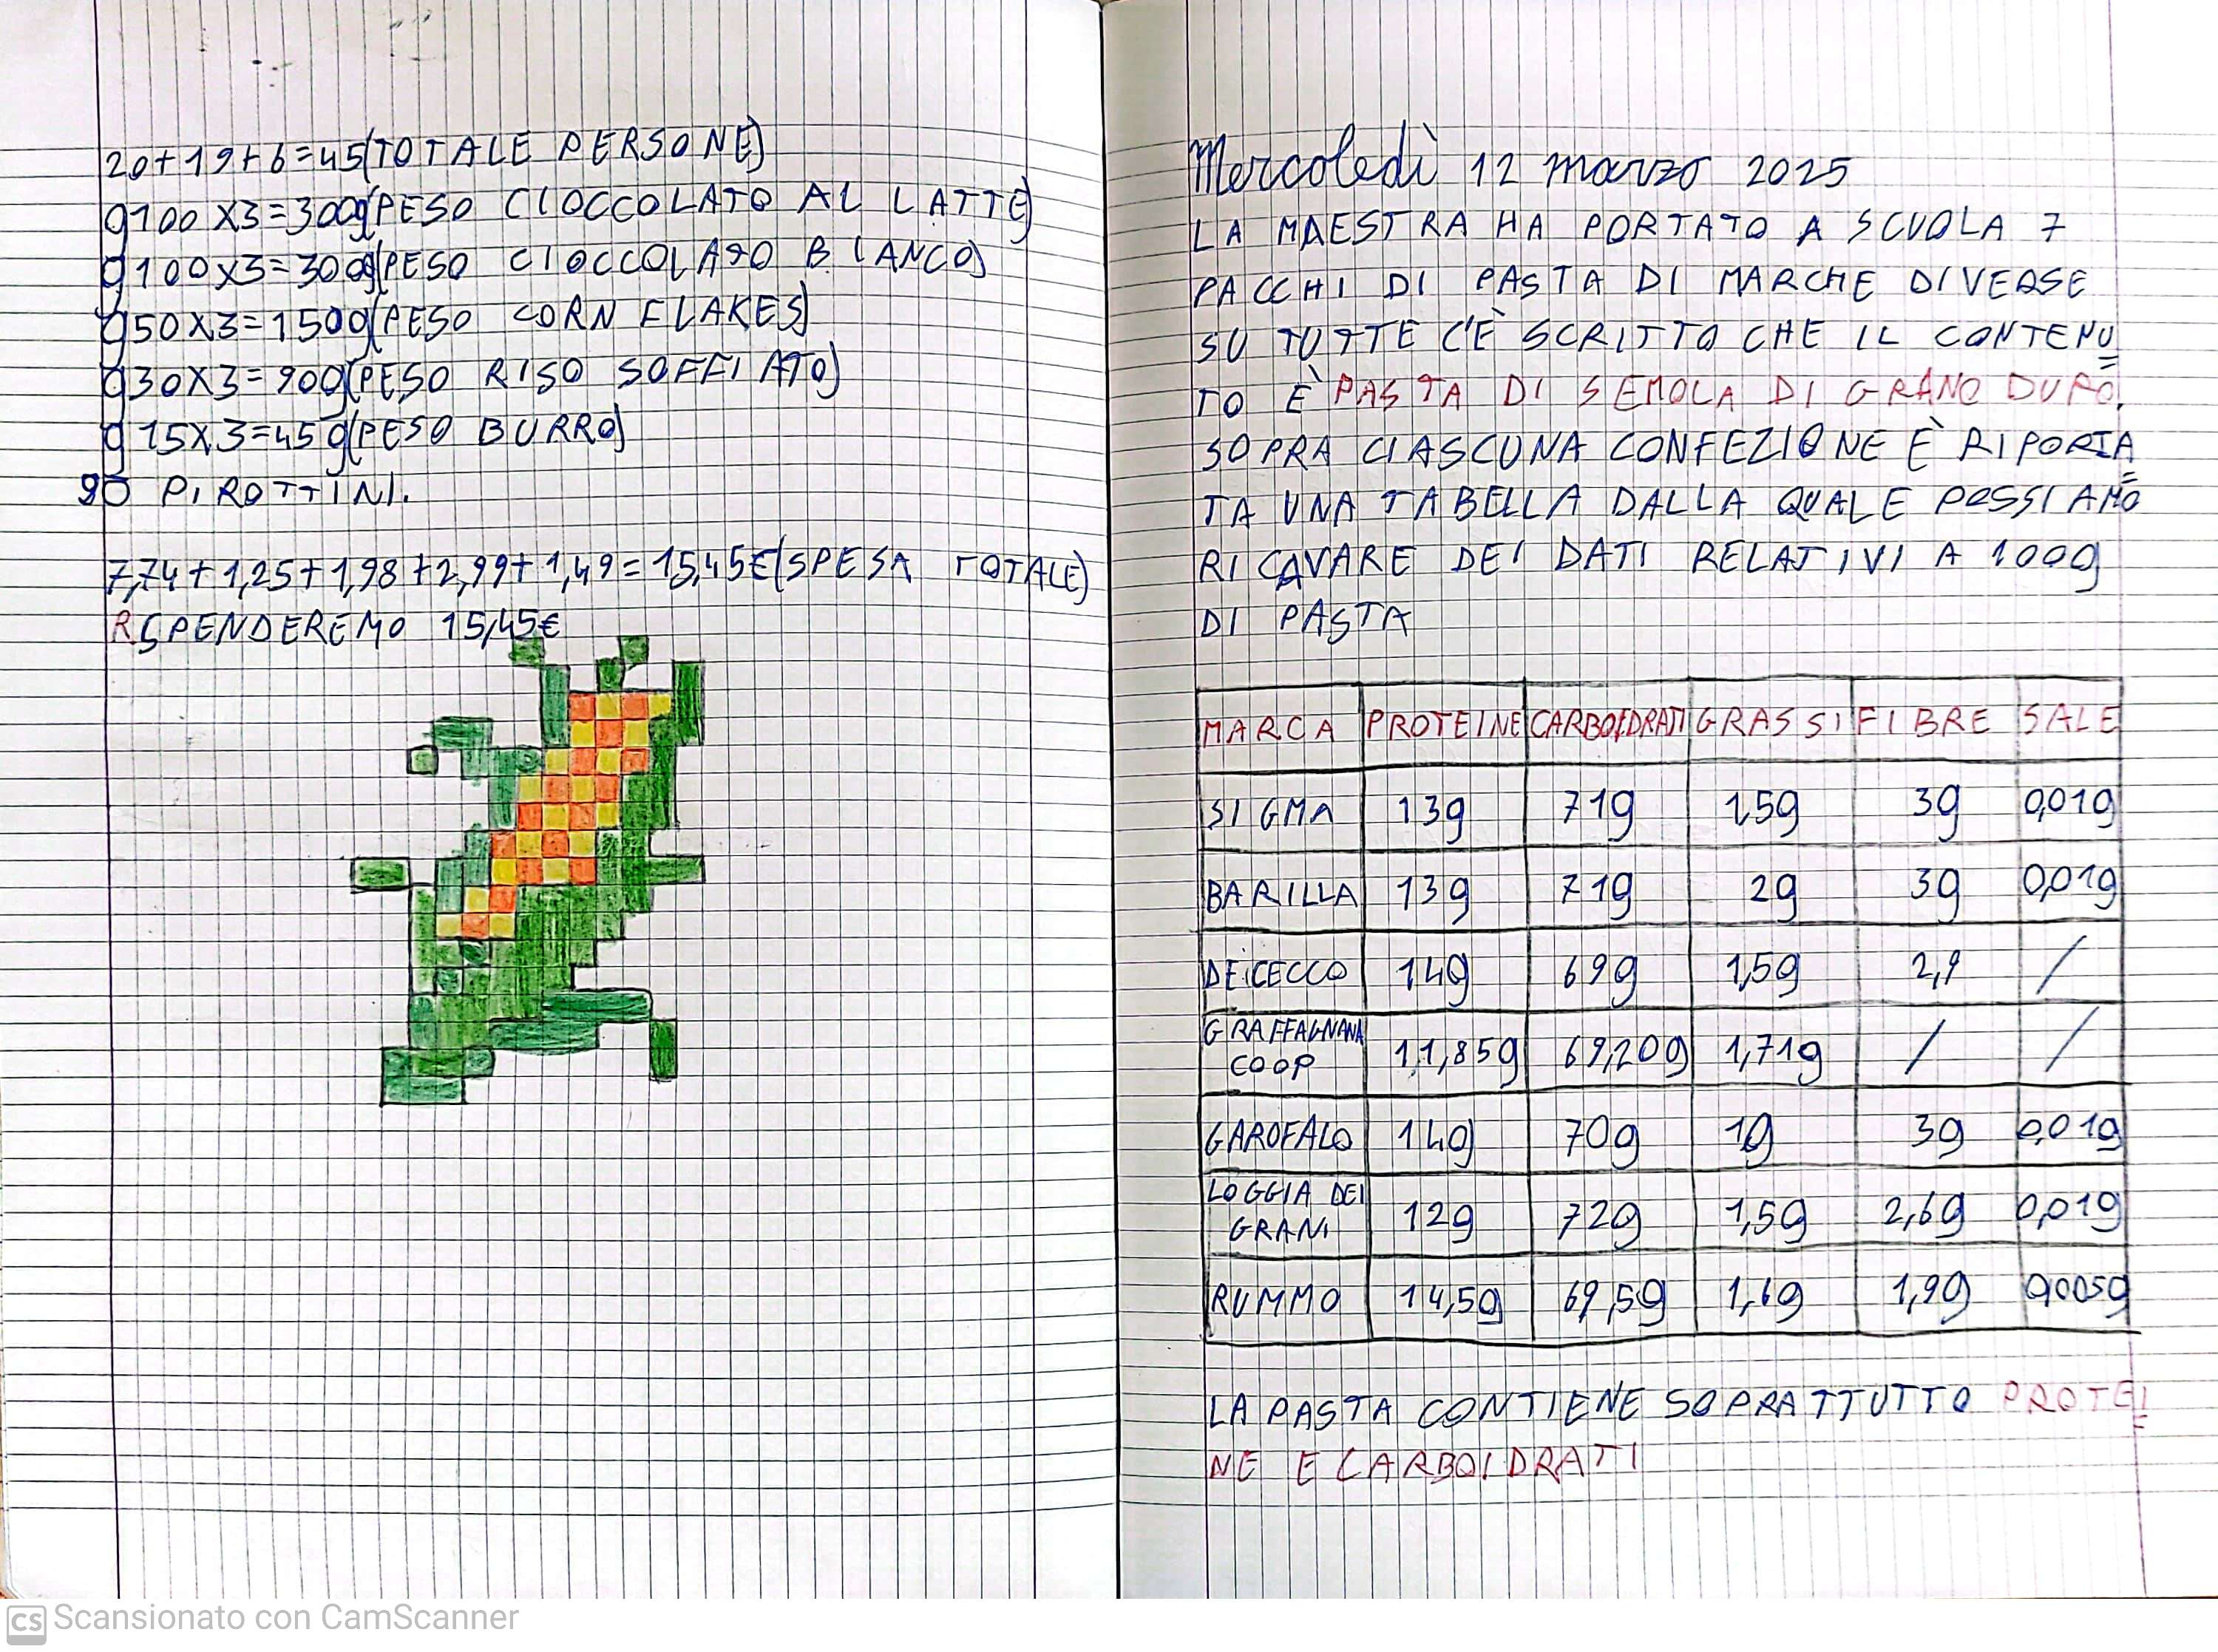 20+19+6=45(TOTALE PERSONE)
g100X3=300g(PESO CIOCCOLATO AL LATTE)
g100X3=300g(PESO CIOCCOLATO BIANCO)
g50X3=150g(PESO CORN FLAKES)
g30X3=90g(PESO RISO SOFFIATO)
g15X3=45g(PESO BURRO)
90 PIROTTINI.
7,74+1,25+1,98+2,99+1,49=15,45€(SPESA TOTALE)
R SPENDEREMO 15,45€
Mercoledì 12 marzo 2025
LA MAESTRA HA PORTATO A SCUOLA 7
PACCHI DI PASTA DI MARCHE DIVERSE
SU TUTTE C'È SCRITTO CHE IL CONTENU=
TO È PASTA DI SEMOLA DI GRANO DURO.
SOPRA CIASCUNA CONFEZIONE È RIPORTA=
TA UNA TABELLA DALLA QUALE POSSIAMO
RICAVARE DEI DATI RELATIVI A 100g
DI PASTA
MARCA PROTEINE CARBOIDRATI GRASSI FIBRE SALE
SIGMA 13g 71g 1,5g 3g 0,01g
BARILLA 13g 71g 2g 3g 0,01g
DE CECCO 14g 69g 1,5g 2,9 /
GRAFFAGNANA
COOP 11,85g 69,20g 1,71g / /
GAROFALO 14g 70g 1g 3g 0,01g
LOGGIA DEI
GRANI 12g 72g 1,5g 2,6g 0,01g
RUMMO 14,5g 69,5g 1,6g 1,9g 0,005g
LA PASTA CONTIENE SOPRATTUTTO PROTEI=
NE E CARBOIDRATI
CS Scansionato con CamScanner